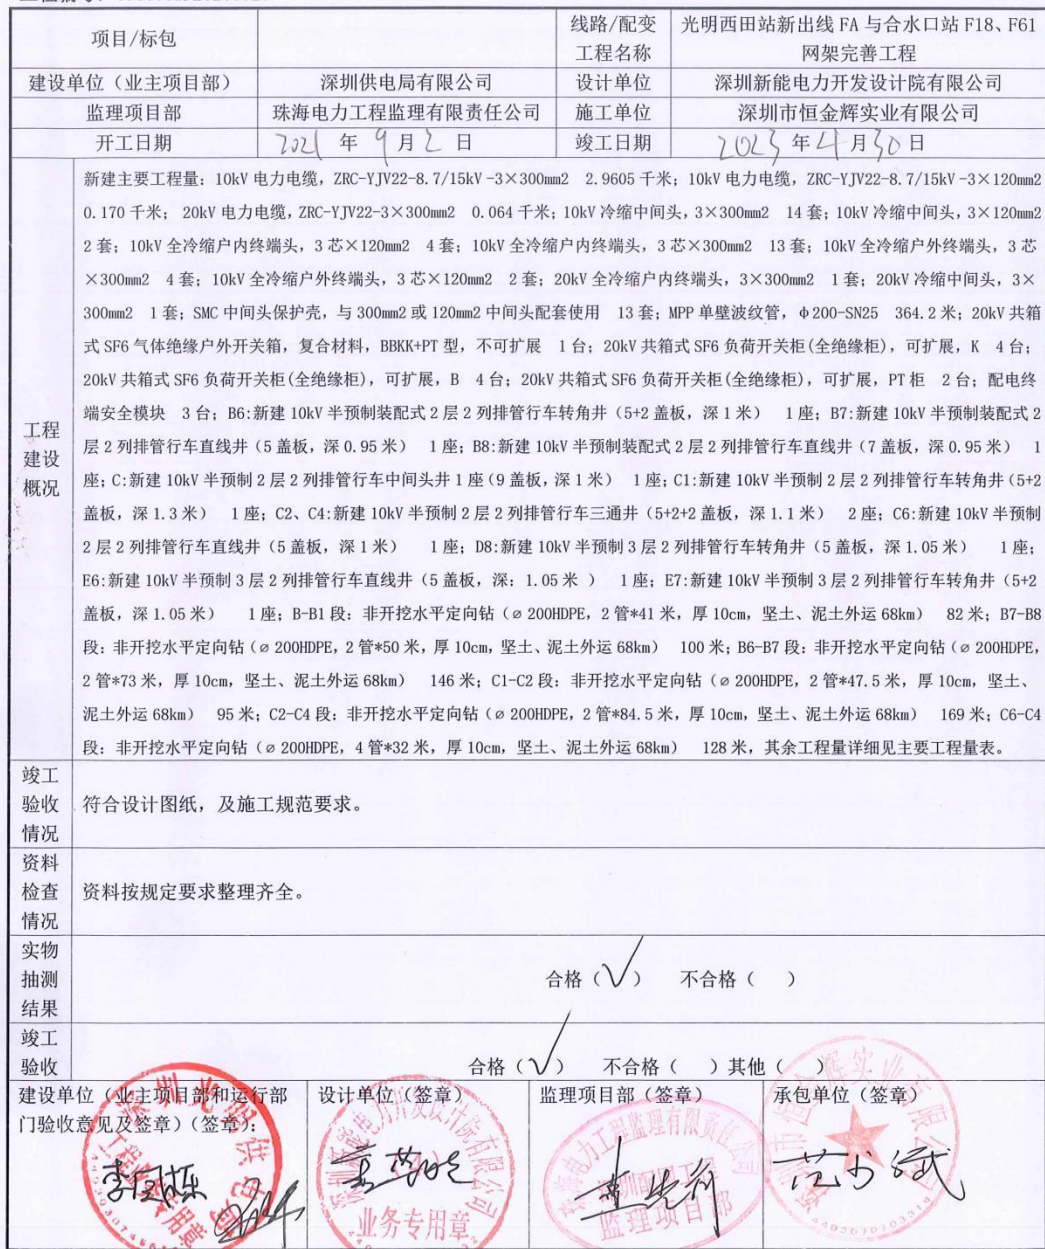 项目/标包
线路/配变
工程名称
光明西田站新出线 FA 与合水口站 F18、F61
网架完善工程
建设单位（业主项目部）
深圳供电局有限公司
设计单位
深圳新能电力开发设计院有限公司
监理项目部
珠海电力工程监理有限责任公司
施工单位
深圳市恒金辉实业有限公司
开工日期
2021 年 9 月 2 日
竣工日期
2023 年 4 月 30 日
工程
建设
概况
新建主要工程量：10kV 电力电缆，ZRC-YJV22-8.7/15kV-3×300mm2 2.9605 千米；10kV 电力电缆，ZRC-YJV22-8.7/15kV-3×120mm2
0.170 千米； 20kV 电力电缆，ZRC-YJV22-3×300mm2 0.064 千米；10kV 冷缩中间头，3×300mm2 14 套；10kV 冷缩中间头，3×120mm2
2 套；10kV 全冷缩户内终端头，3 芯×120mm2 4 套；10kV 全冷缩户内终端头，3 芯×300mm2 13 套；10kV 全冷缩户外终端头，3 芯
×300mm2 4 套；10kV 全冷缩户外终端头，3 芯×120mm2 2 套；20kV 全冷缩户内终端头，3×300mm2 1 套；20kV 冷缩中间头，3×
300mm2 1 套；SMC 中间头保护壳，与 300mm2 或 120mm2 中间头配套使用 13 套；MPP 单壁波纹管，φ200-SN25 364.2 米；20kV 共箱
式 SF6 气体绝缘户外开关箱，复合材料，BBKK+PT 型，不可扩展 1 台；20kV 共箱式 SF6 负荷开关柜(全绝缘柜)，可扩展，K 4 台；
20kV 共箱式 SF6 负荷开关柜(全绝缘柜)，可扩展，B 4 台；20kV 共箱式 SF6 负荷开关柜(全绝缘柜)，可扩展，PT 柜 2 台；配电终
端安全模块 3 台；B6:新建 10kV 半预制装配式 2 层 2 列排管行车转角井（5+2 盖板，深 1 米） 1 座；B7:新建 10kV 半预制装配式 2
层 2 列排管行车直线井（5 盖板，深 0.95 米） 1 座；B8:新建 10kV 半预制装配式 2 层 2 列排管行车直线井（7 盖板，深 0.95 米） 1
座；C:新建 10kV 半预制 2 层 2 列排管行车中间头井 1 座（9 盖板，深 1 米） 1 座；C1:新建 10kV 半预制 2 层 2 列排管行车转角井（5+2
盖板，深 1.3 米） 1 座；C2、C4:新建 10kV 半预制 2 层 2 列排管行车三通井（5+2+2 盖板，深 1.1 米） 2 座；C6:新建 10kV 半预制
2 层 2 列排管行车直线井（5 盖板，深 1 米） 1 座；D8:新建 10kV 半预制 3 层 2 列排管行车转角井（5 盖板，深 1.05 米） 1 座；
E6:新建 10kV 半预制 3 层 2 列排管行车直线井（5 盖板，深：1.05 米 ） 1 座；E7:新建 10kV 半预制 3 层 2 列排管行车转角井（5+2
盖板，深 1.05 米） 1 座；B-B1 段：非开挖水平定向钻（⌀200HDPE，2 管*41 米，厚 10cm，坚土、泥土外运 68km） 82 米；B7-B8
段：非开挖水平定向钻（⌀200HDPE，2 管*50 米，厚 10cm，坚土、泥土外运 68km） 100 米；B6-B7 段：非开挖水平定向钻（⌀200HDPE，
2 管*73 米，厚 10cm，坚土、泥土外运 68km） 146 米；C1-C2 段：非开挖水平定向钻（⌀200HDPE，2 管*47.5 米，厚 10cm，坚土、
泥土外运 68km） 95 米；C2-C4 段：非开挖水平定向钻（⌀200HDPE，2 管*84.5 米，厚 10cm，坚土、泥土外运 68km） 169 米；C6-C4
段：非开挖水平定向钻（⌀200HDPE，4 管*32 米，厚 10cm，坚土、泥土外运 68km） 128 米，其余工程量详细见主要工程量表。
竣工
验收
情况
符合设计图纸，及施工规范要求。
资料
检查
情况
资料按规定要求整理齐全。
实物
抽测
结果
合格（√） 不合格（ ）
竣工
验收
合格（√） 不合格（ ）其他（ ）
建设单位（业主项目部和运行部
门验收意见及签章）（签章）：
设计单位（签章）
监理项目部（签章）
承包单位（签章）
业务专用章
监理项目部